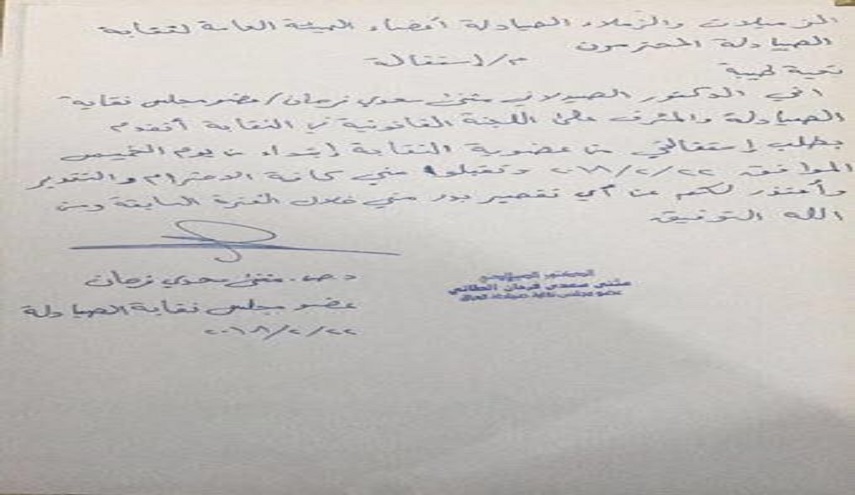 الزميلات والزملاء الصيادلة أعضاء الهيئة العامة لنقابة
الصيادلة المحترمون
م/ إستقالة
تحية طيبة
اني الدكتور الصيدلاني مثنى سعدي فرمان/عضو مجلس نقابة
الصيادلة والمشرف على اللجنة القانونية في النقابة أتقدم
بطلب إستقالتي من عضوية النقابة إبتداء من يوم الخميس
الموافق ٢٠١٨/٢/٢٢ وتقبلوا مني كافة الاحترام والتقدير
وأعتذر لكم عن أي تقصير بدر مني خلال الفترة السابقة ومن
الله التوفيق
د.ص. مثنى سعدي فرمان
عضو مجلس نقابة الصيادلة
٢٠١٨/٢/٢٢
الدكتور الصيدلاني
مثنى سعدي فرمان الطائي
عضو مجلس نقابة صيادلة العراق